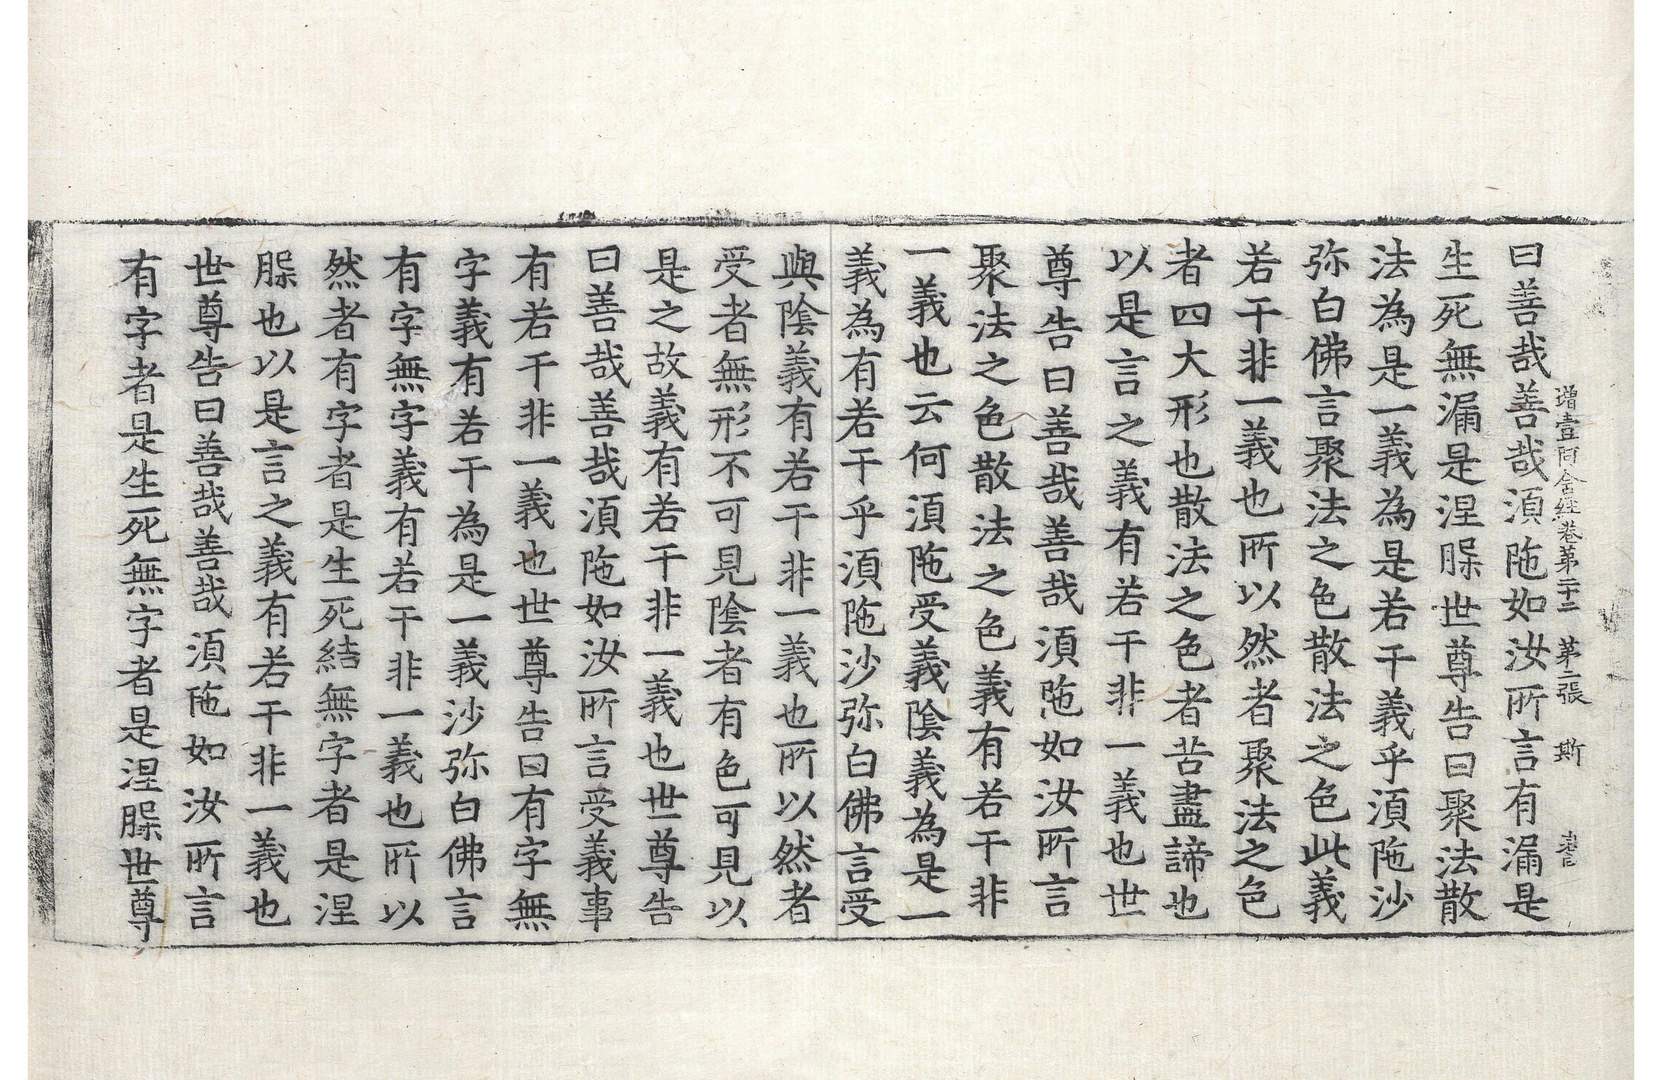 增壹阿含経卷第二十二　第二張　斯
曰善哉善哉湏陁如汝所言有漏是
生死無漏是涅槃世尊告曰聚法散
法為是一義為是若干義乎湏陁沙
弥白佛言聚法之色散法之色此義
若干非一義也所以然者聚法之色
者四大形也散法之色者苦盡諦也
以是言之義有若干非一義也世
尊告曰善哉善哉湏陁如汝所言
聚法之色散法之色義有若干非
一義也云何湏陁受義陰義為是一
義為有若干乎湏陁沙弥白佛言受
與陰義有若干非一義也所以然者
受者無形不可見陰者有色可見以
是之故義有若干非一義也世尊告
曰善哉善哉湏陁如汝所言受義事
有若干非一義也世尊告曰有字無
字義有若干為是一義沙弥白佛言
有字無字義有若干非一義也所以
然者有字者是生死結無字者是涅
槃也以是言之義有若干非一義也
世尊告曰善哉善哉湏陁如汝所言
有字者是生死無字者是涅槃世尊